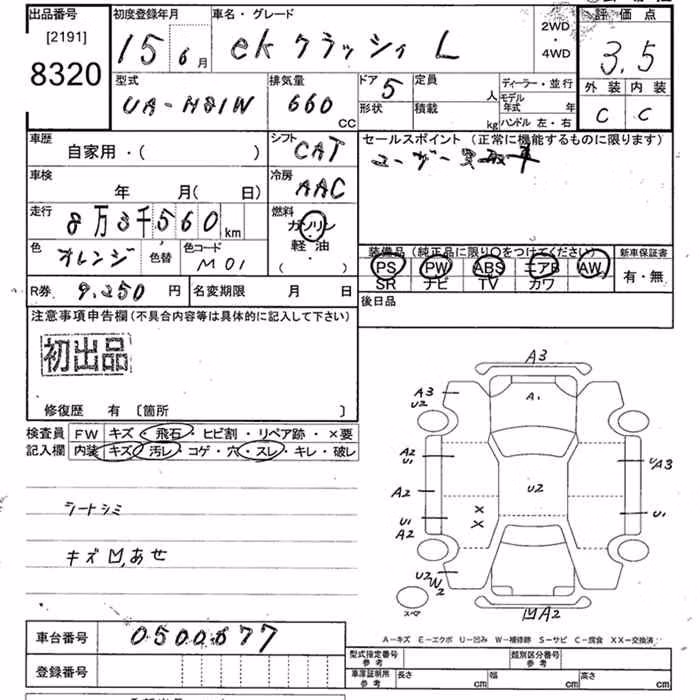 出品番号
[2191]
8320
初度登録年月
15 6 月
車名・グレード
ekクラッシィ L
2WD
・
4WD
評価点
3.5
外装 内装
C C
型式
UA-H81W
排気量
660 CC
ドア 5
形状
定員 人
積載 kg
ディーラー・並行
モデル年式 年
ハンドル 左・右
車歴
自家用・( )
シフト
CAT
セールスポイント (正常に機能するものに限ります)
ユーザー買取車
車検
年 月( 日)
冷房
AAC
走行
8万3千560 km
燃料
ガソリン
軽・油
( )
色
オレンジ
色替
色コード
M01
装備品 (純正品に限り○をつけてください)
PS PW ABS エアB AW
SR ナビ TV カワ
新車保証書
有・無
R券 9,250 円
名変期限 月 日
後日品
注意事項申告欄(不具合内容等は具体的に記入して下さい)
初出品
修復歴 有 〔箇所 〕
検査員 FW キズ・飛石・ヒビ割・リペア跡・×要
記入欄 内装 キズ・汚レ・コゲ・穴・スレ・キレ・破レ
シートシミ
キズ凹,あせ
A3
A3
U2
A1
A2
U1
UA3
A2
U2
U1
A2
X
X
U1
U2
W2
スペア
凹A2
A-キズ E-エクボ U-凹み W-補修跡 S-サビ C-腐食 XX-交換済
車台番号 0500577
登録番号
型式指定番号
参考
類別区分番号
参考
車庫証明用
参考
長さ cm
幅 cm
高さ cm